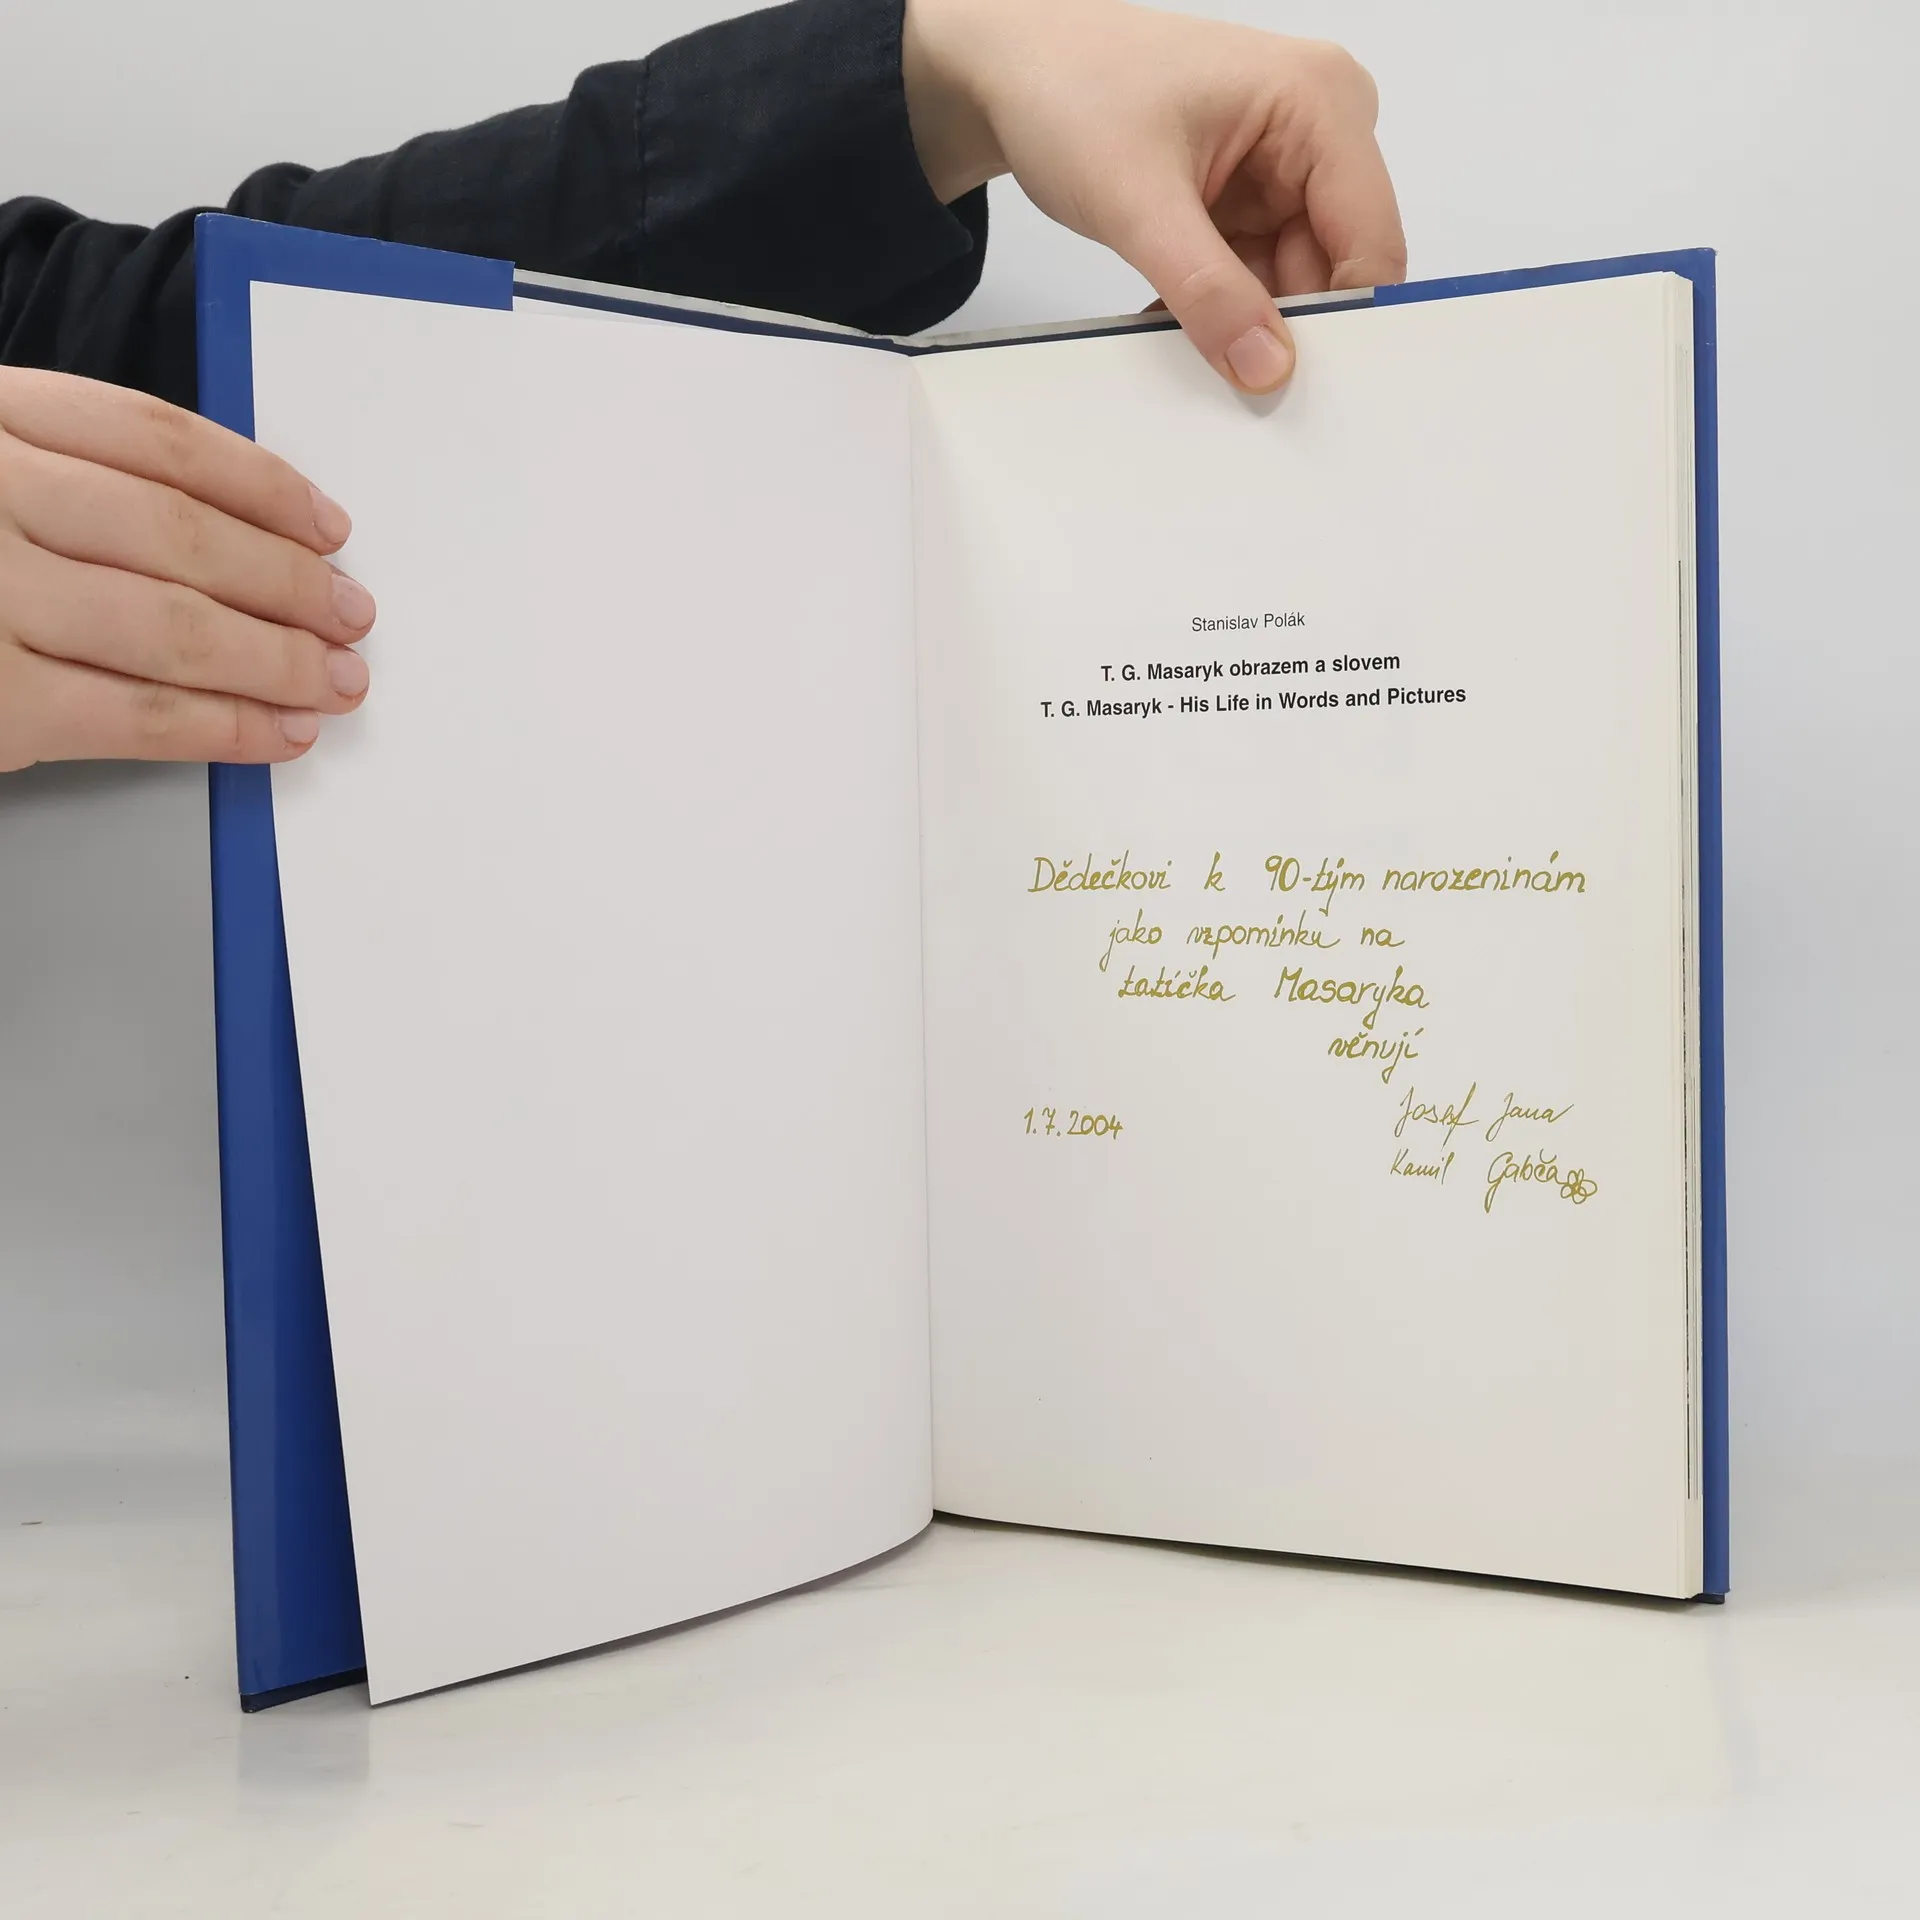 Stanislav Polák
T. G. Masaryk obrazem a slovem
T. G. Masaryk - His Life in Words and Pictures
Dědečkovi k 90-tým narozeninám
jako vzpomínku na
tatíčka Masaryka
věnují
Josef Jana
1.7.2004
Kamil Gabča